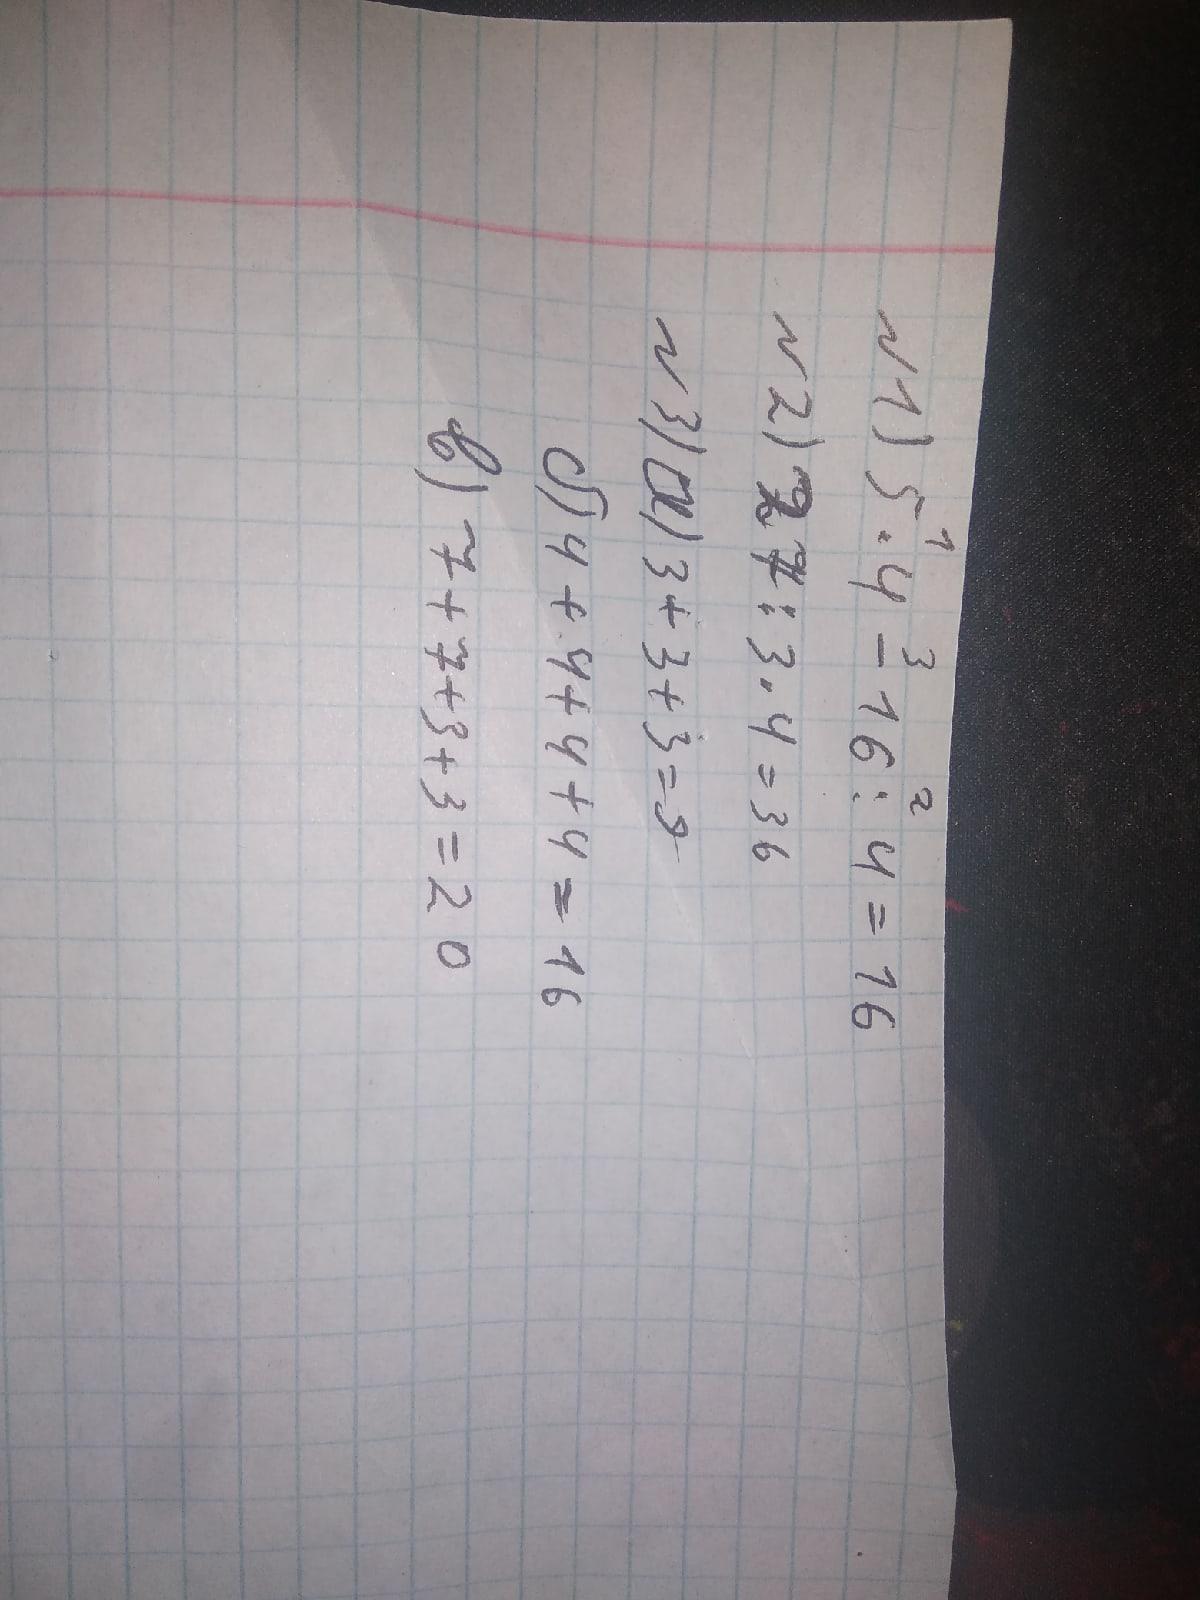 1 3 2
N1) 5·4-16:4=16
N2) 27:3·4=36
N3) а) 3+3+3=9
б) 4+4+4+4=16
в) 7+7+3+3=20